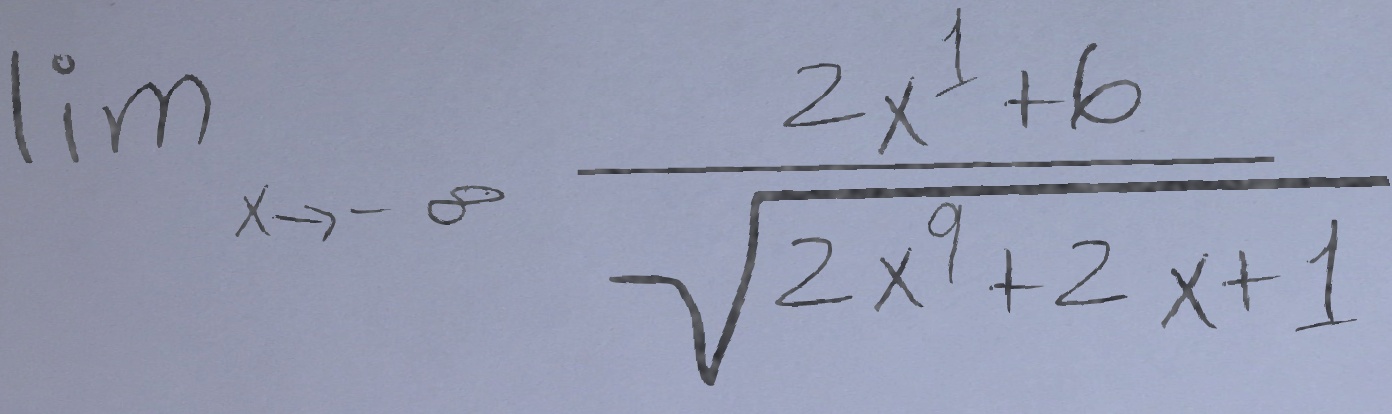 lim x→-∞ \frac{2x^1+6}{\sqrt{2x^9+2x+1}}